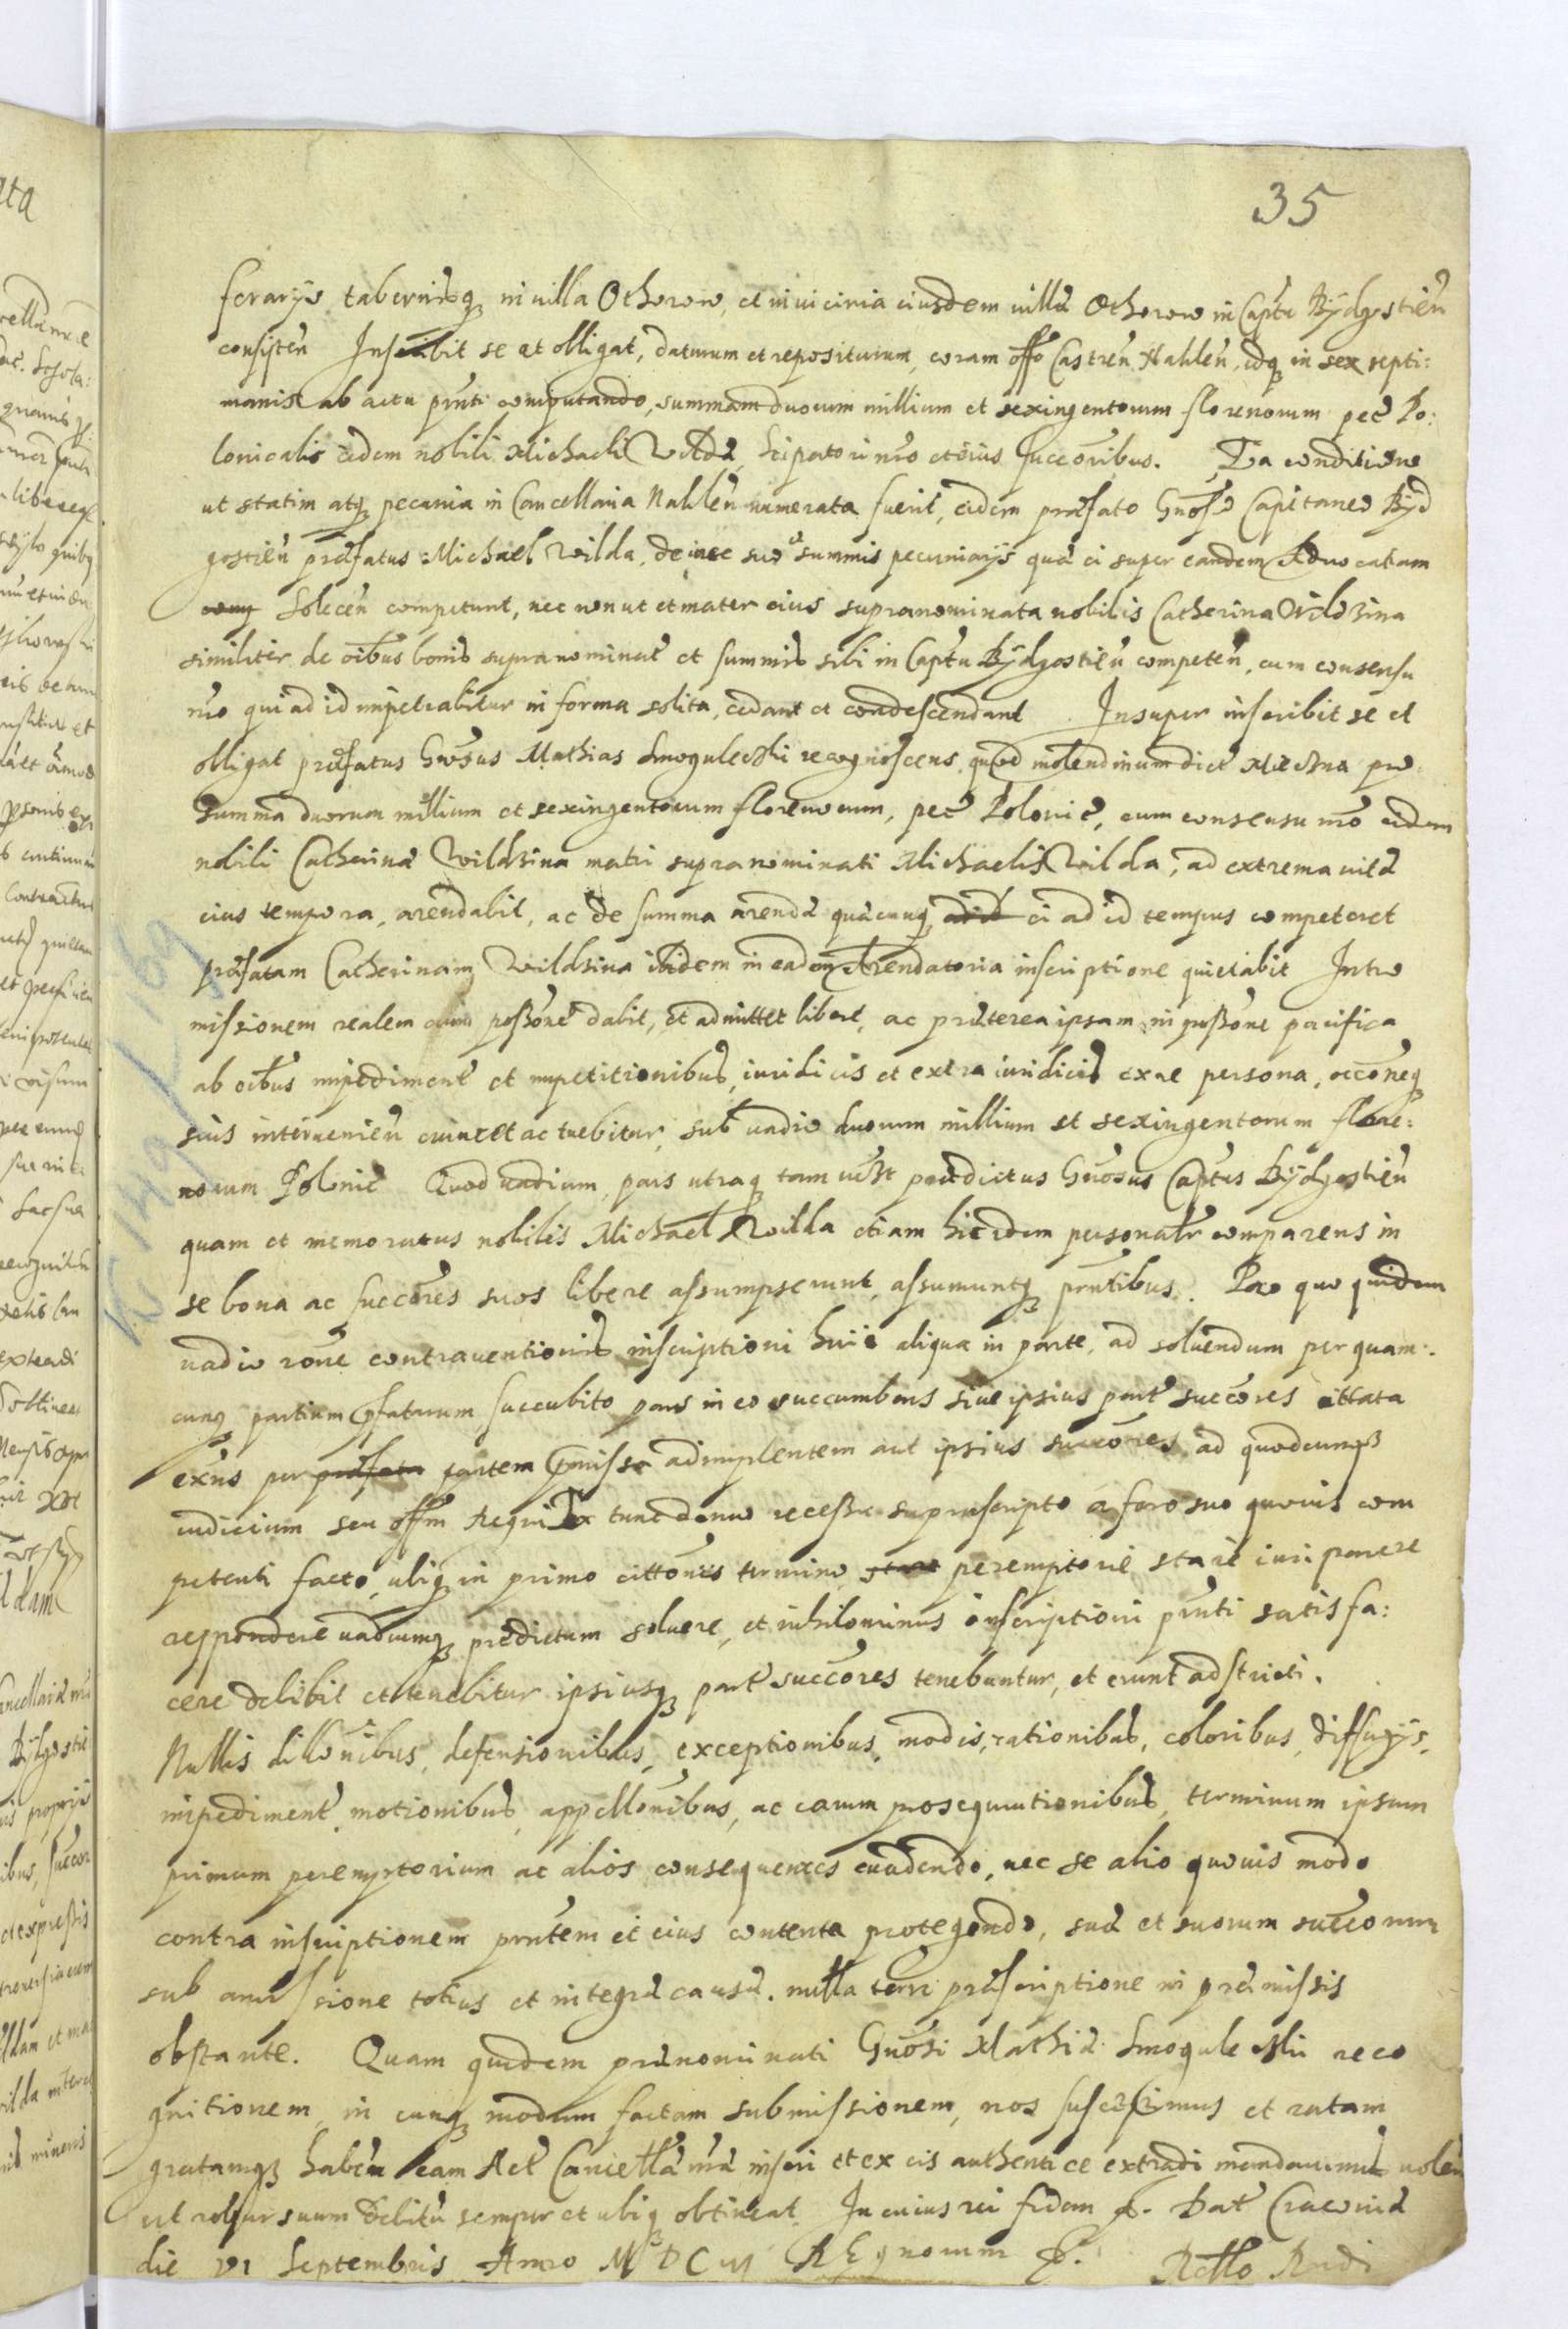 35
ferarijs tabernisq in villa Othorow, et in vicinia eiusdem villæ Othorow in Captu Bÿdgostien
consisten Inscribit se et obligat, daturum et repositurum, coram offo Castren Naklen, idq in sex septi:
manis ab actu pnti computando, summam duorum millium et sexingentorum florenorum pec Po:
lonicalis eidem nobili Michaeli Wilda, Stipatori nro et eius succoribus. Ea conditione
ut statim atq pecunia in Cancellaria Naklen numerata fuerit, eidem præfato Gnoso Capitaneo Bÿd
gostien præfatus Michael Wilda, de iure suo summis pecuniarijs quæ ei super eandem Aduocatiam
Solecen competunt, nec non ut et mater eius supranominata nobilis Catherina Wildzina
similiter de oibus bonis supranominat et summis sibi in Captu Bÿdgostien competen, cum consensu
nro qui ad id impetrabitur in forma solita, cedant et condescendant. Insuper inscribit se et
obligat præfatus Gnosus Mathias Smogulecki recognoscens, quod molendinum dict pro
summa duorum millium et sexingentorum florenorum, pec Polonic, cum consensu nro eidem
nobili Catherinæ Wildzina matri supranominati Michaelis Wilda, ad extrema vitæ
eius tempora, arendabit, ac de summa arendæ quæcunq ei ad id tempus competeret
præfatam Catherinam Wildzina ibidem in eadem Arendatoria inscriptione quietabit Intro
missionem realem possone dabit, et admittet libere, ac præterea ipsam in possone pacifica
ab oibus impediment et impetitionibus, iuridicis et extra iuridicis ex re persona, occoneq
suis interuenien euincet ac tuebitur, sub vadio duorum millium et sexingentorum flore:
norum Polonic Quod vadium, pars utraq tam prædictus Gnosus Captus Bÿdgostien
quam et memoratus nobilis Michael Wilda etiam hic idem personalr comparens in
se bona ac succores suos libere assumpserunt, assumuntq pntibus. Pro quo quidem
vadio rone contrauentionis inscriptioni huic aliqua in parte, ad soluendum per quam:
cunq partium pfatarum succubito pars in eo succumbens siue ipsius part succores cittata
exns per partem pmissa adimplentem aut ipsius succores ad quodcunq
iudicium seu offm Regni Ex tunc denuo recessu suprascripto a foro suo quouis com
petenti facto, ubiq in primo cittonis termino peremptorie stare iuri parere
respondere vadiumq prædictum soluere, et nihilominus inscriptioni pnti satis fa:
cere debebit et tenebitur ipsiusq part succores tenebuntur, et erunt adstricti.
Nullis dillonibus, defensionibus, exceptionibus, modis, rationibus, coloribus, diffugijs,
impediment, motionibus, appellonibus, ac earum prosequutionibus, terminum ipsum
primum peremptorium ac alios consequentes euadendo, nec se alio quouis modo
contra inscriptionem pntem et eius contenta protegendo, suæ et suorum succorum
sub amissione totius et integræ causæ. nulla terr præscriptione in præmissis
obstante. Quam quidem prænominati Gnosi Mathiæ Smogulecki reco
gnitionem, in eunq modum factam submissionem, nos suscepimus et ratam
gratamq haben eam Act Cancellæ nræ inseri et ex eis authentice extradi mandauimus volen
ut robur suum debitu semper et ubiq obtineat. In cuius rei fidem p. Dat Cracouiæ
die VI Septembris Anno M DC VI REgnorum p. Retto